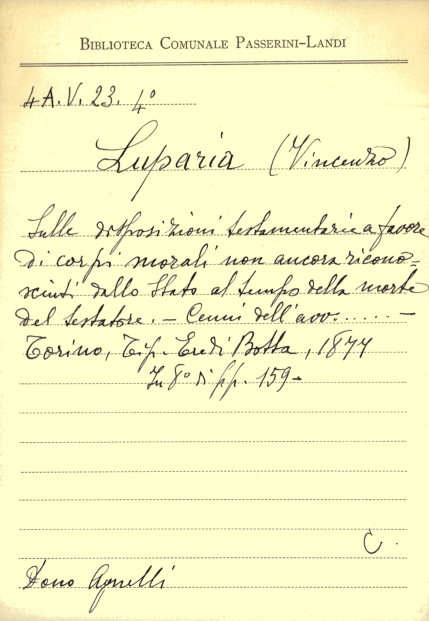 BIBLIOTECA COMUNALE PASSERINI-LANDI
4 A. V. 23. 4º
Luparia (Vincenzo)
Sulle disposizioni testamentarie a favore
di corpi morali non ancora ricono=
sciuti dallo Stato al tempo della morte
del testatore. — Cenni dell'avv. ..... —
Torino, Tip. Eredi Botta, 1877
In 8º di pp. 159 -
C.
Dono Agnelli